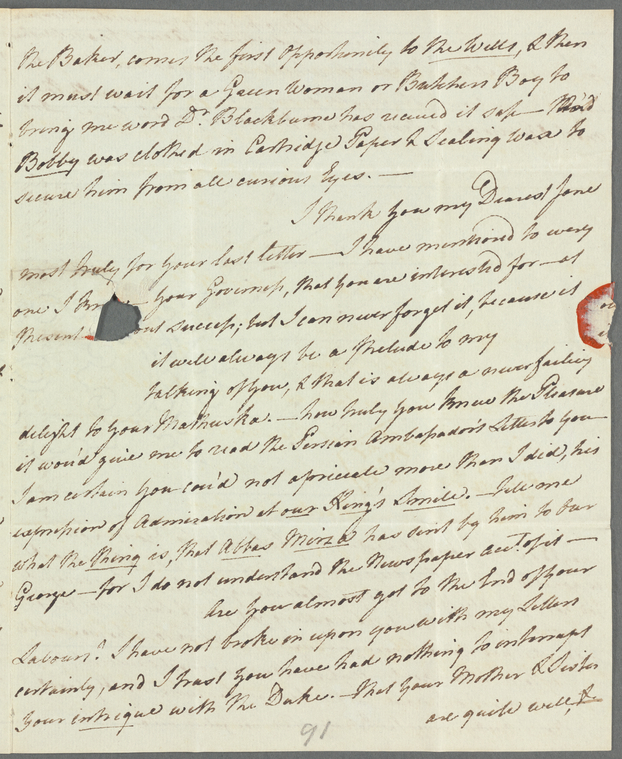 the Baker, comes the first Opportunity to the Wells, & then
it must wait for a Green Woman or Butchers Boy to
bring me word Dr. Blackburne has recived it safe —
Bobby was clothed in Cartridge Paper & Sealing Wax to
secure him from all curious Eyes. —
I thank you my Dearest Jane
most truly for your last letter — I have mentioned to every
one I your Governess, that you are interested for — at
Present success; but I can never forget it, because it
it will always be a Prelude to my
talking of you, & that is always a never failing
delight to your Mathuska. — how truly you knew the Pleasure
it wou'd give me to read the Persian Ambassador's Letter to you
I am certain you cou'd not apreciate more than I did, his
expression of Admiration at our King's Smile. — tell me
what the thing is, that Abbas Mirza has sent by him to our
George — for I do not understand the Newspaper acct. of it —
Are you almost got to the End of your
Labours? I have not broke in upon you with my Letters
certainly, and I trust you have had nothing to interrupt
your intrigue with the Duke. — that your Mother & Sister
are quite well, &
91